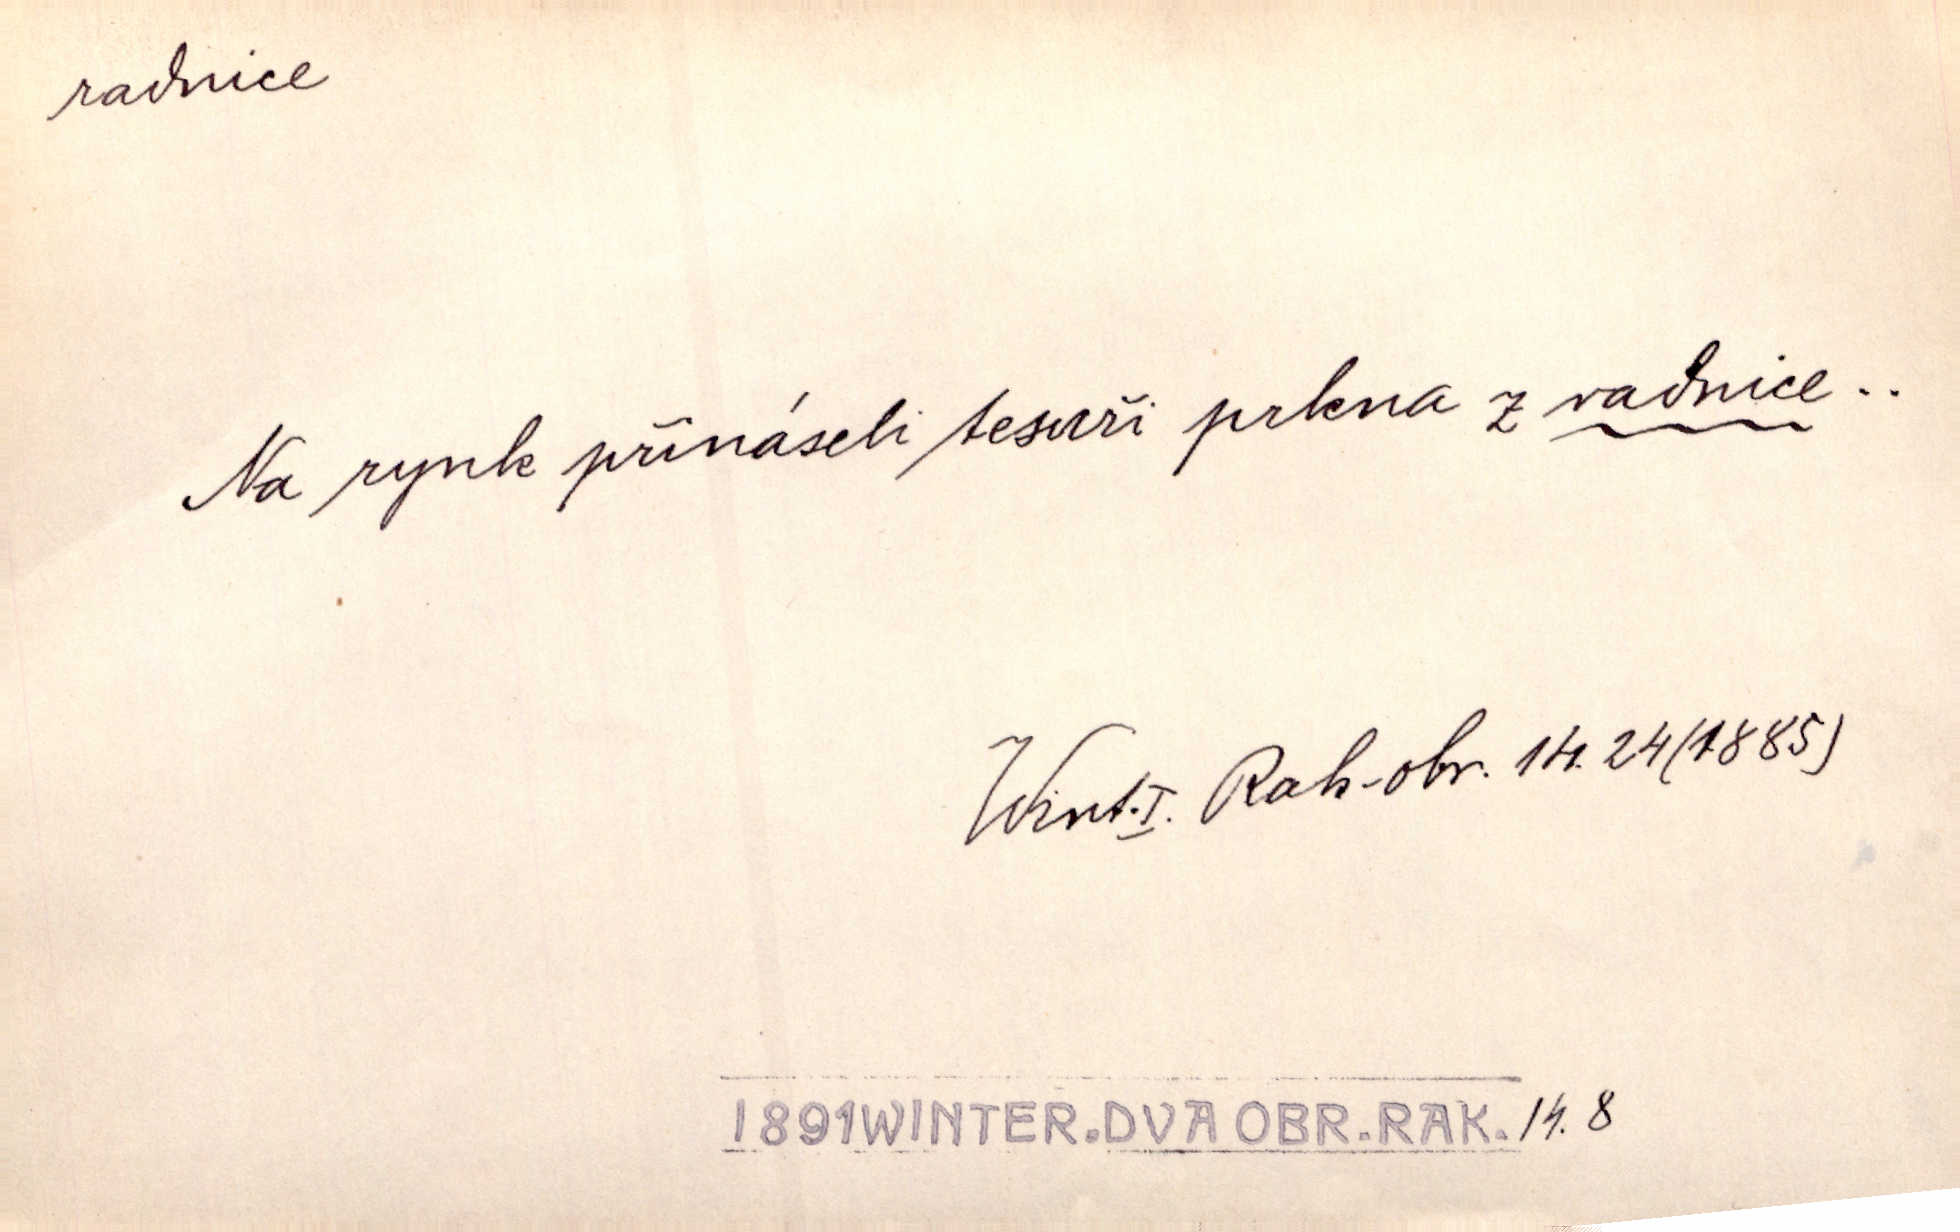 radnice
Na rynk přinášeli tesaři prkna z radnice..
Wint. I. Rak-obr. 14. 24 (1885)
1891 WINTER. DVA OBR. RAK. 14. 8